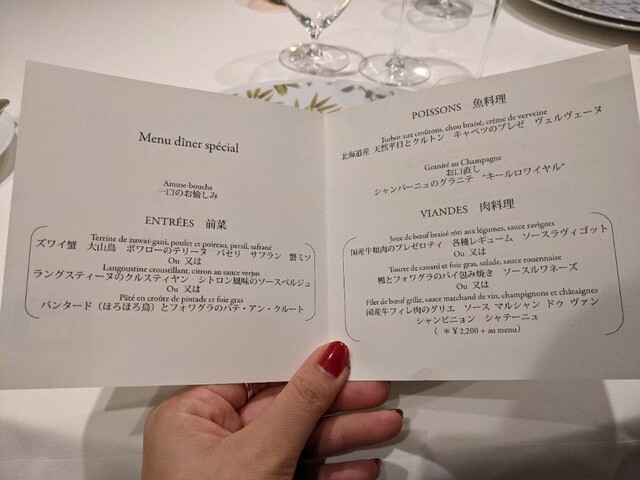 Menu dîner spécial
Amuse-bouche
一口のお愉しみ
ENTRÉES 前菜
Terrine de zuwai-gani, poulet et poireau, persil, safrané
ズワイ蟹 大山鳥 ポワローのテリーヌ パセリ サフラン 蟹ミソ
Ou 又は
Langoustine croustillant, citron au sauce verjus
ラングスティーヌのクルスティヤン シトロン風味のソースベルジュ
Ou 又は
Pâté en croûte de pintade et foie gras
パンタード（ほろほろ鳥）とフォワグラのパテ・アン・クルート
POISSONS 魚料理
Turbot aux croûtons, chou braisé, crème de verveine
北海道産 天然平目とクルトン キャベツのブレゼ ヴェルヴェーヌ
Granité au Champagne
お口直し
シャンパーニュのグラニテ "キールロワイヤル"
VIANDES 肉料理
Joue de bœuf braisé rôti aux légumes, sauce ravigots
国産牛頬肉のブレゼロティ 各種レギューム ソースラヴィゴット
Ou 又は
Tourte de canard et foie gras, salade, sauce rouennaise
鴨とフォワグラのパイ包み焼き ソースルワネーズ
Ou 又は
Filet de bœuf grille, sauce marchand de vin, champignons et châtaignes
国産牛フィレ肉のグリエ ソース マルシャン ドゥ ヴァン
シャンピニョン シャテーニュ
（ ＊￥2,200 + au menu）